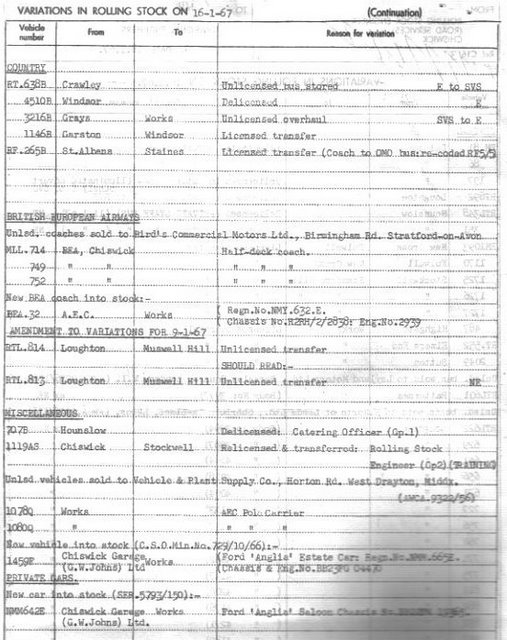 VARIATIONS IN ROLLING STOCK ON 16-1-67 (Continuation)
Vehicle number From To Reason for variation
COUNTRY
RT.638B Crawley Unlicensed bus stored E to SVS
4510B Windsor Delicensed E
3216B Grays Works Unlicensed overhaul SVS to E
1146B Garston Windsor Licensed transfer
RF.265B St.Albans Staines Licensed transfer (Coach to OMO bus:re-coded RF5/5)
BRITISH EUROPEAN AIRWAYS
Unlsd. coaches sold to Bird's Commercial Motors Ltd., Birmingham Rd. Stratford-on-Avon
MLL.714 BEA, Chiswick Half-deck coach.
749 " " " " "
752 " " " " "
New BEA coach into stock:-
BEA.32 A.E.C. Works ( Regn.No.NMY.632.E.
( Chassis No.R2RH/2/2838: Eng.No.2939
AMENDMENT TO VARIATIONS FOR 9-1-67
RTL.814 Loughton Muswell Hill Unlicensed transfer
SHOULD READ:-
RTL.813 Loughton Muswell Hill Unlicensed transfer NE
MISCELLANEOUS
707B Hounslow Delicensed: Catering Officer (Gp.1)
1119AS Chiswick Stockwell Relicensed & transferred: Rolling Stock
Engineer (Gp2)(TRAINING)
Unlsd.vehicles sold to Vehicle & Plant Supply Co., Horton Rd. West Drayton, Middx.
(AWCA.9322/56)
1078Q Works AEC Pole Carrier
1080Q " " "
New vehicle into stock (C.S.O.Min.No.729/10/66):-
1459F Chiswick Garage Works (Ford 'Anglia' Estate Car: Regn.No.NMM.665E.
(G.W.Johns) Ltd (Chassis & Eng.No.
PRIVATE CARS.
New car into stock (SER.5793/150):-
NMM642E Chiswick Garage Works Ford 'Anglia' Saloon Chassis No.
(G.W.Johns) Ltd.